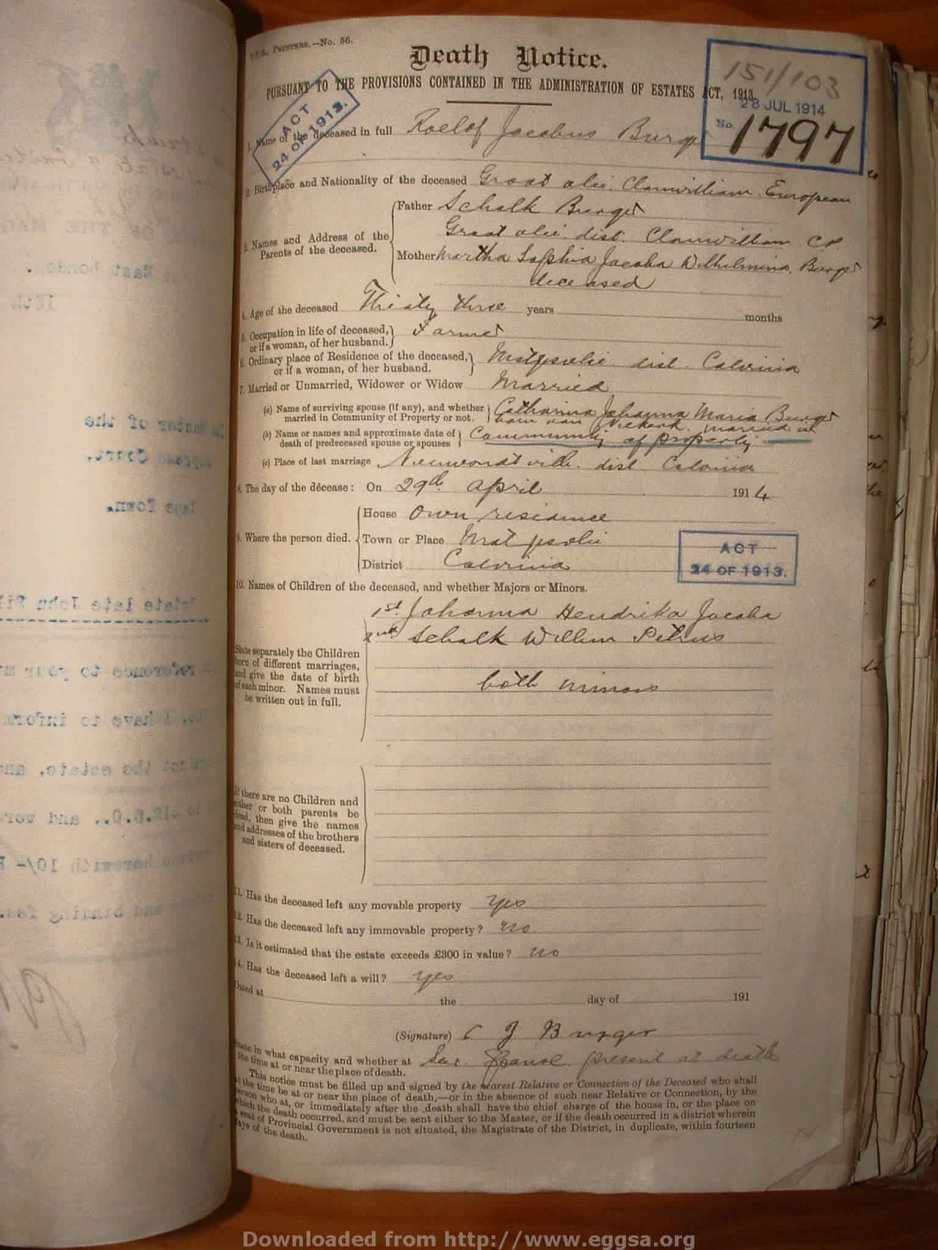 PAINTERS.—No. 56.
Death Notice.
PURSUANT TO THE PROVISIONS CONTAINED IN THE ADMINISTRATION OF ESTATES ACT, 1913.
151/103
28 JUL 1914
No. 1797
ACT
24 OF 1913.
1. Name of the deceased in full Roelof Jacobus Burger
2. Birthplace and Nationality of the deceased Groot Clanwilliam, European
3. Names and Address of the Parents of the deceased.
Father Schalk Burger
Groot dist. Clanwilliam CP
Mother Martha Sophia Jacoba Wilhelmina Burger
deceased
4. Age of the deceased Thirty three years months
5. Occupation in life of deceased, or if a woman, of her husband. Farmer
6. Ordinary place of Residence of the deceased, or if a woman, of her husband. dist. Calvinia
7. Married or Unmarried, Widower or Widow Married
(a) Name of surviving spouse (if any), and whether married in Community of Property or not. Catharina Johanna Maria Burger
born van married in
(b) Name or names and approximate date of death of predeceased spouse or spouses Community of property
(c) Place of last marriage Nieuwoudtville dist. Calvinia
8. The day of the décease: On 29th April 1914
9. Where the person died.
House Own residence
Town or Place
District Calvinia
ACT
24 OF 1913.
10. Names of Children of the deceased, and whether Majors or Minors.
1st Johanna Hendrika Jacoba
2nd Schalk Willem Petrus
State separately the Children
born of different marriages,
and give the date of birth
of each minor. Names must
be written out in full.
both minors
If there are no Children and
either or both parents be
dead, then give the names
and addresses of the brothers
and sisters of deceased.
11. Has the deceased left any movable property yes
12. Has the deceased left any immovable property? no
13. Is it estimated that the estate exceeds £300 in value? no
14. Has the deceased left a will? yes
Dated at the day of 191
(Signature) C J Burger
State in what capacity and whether at the time at or near the place of death. Spouse present at death
This notice must be filled up and signed by the nearest Relative or Connection of the Deceased who shall
at the time be at or near the place of death,—or in the absence of such near Relative or Connection, by the
person who at, or immediately after the death shall have the chief charge of the house in, or the place on
which the death occurred, and must be sent either to the Master, or if the death occurred in a district wherein
a seat of Provincial Government is not situated, the Magistrate of the District, in duplicate, within fourteen
days of the death.
Downloaded from http://www.eggsa.org